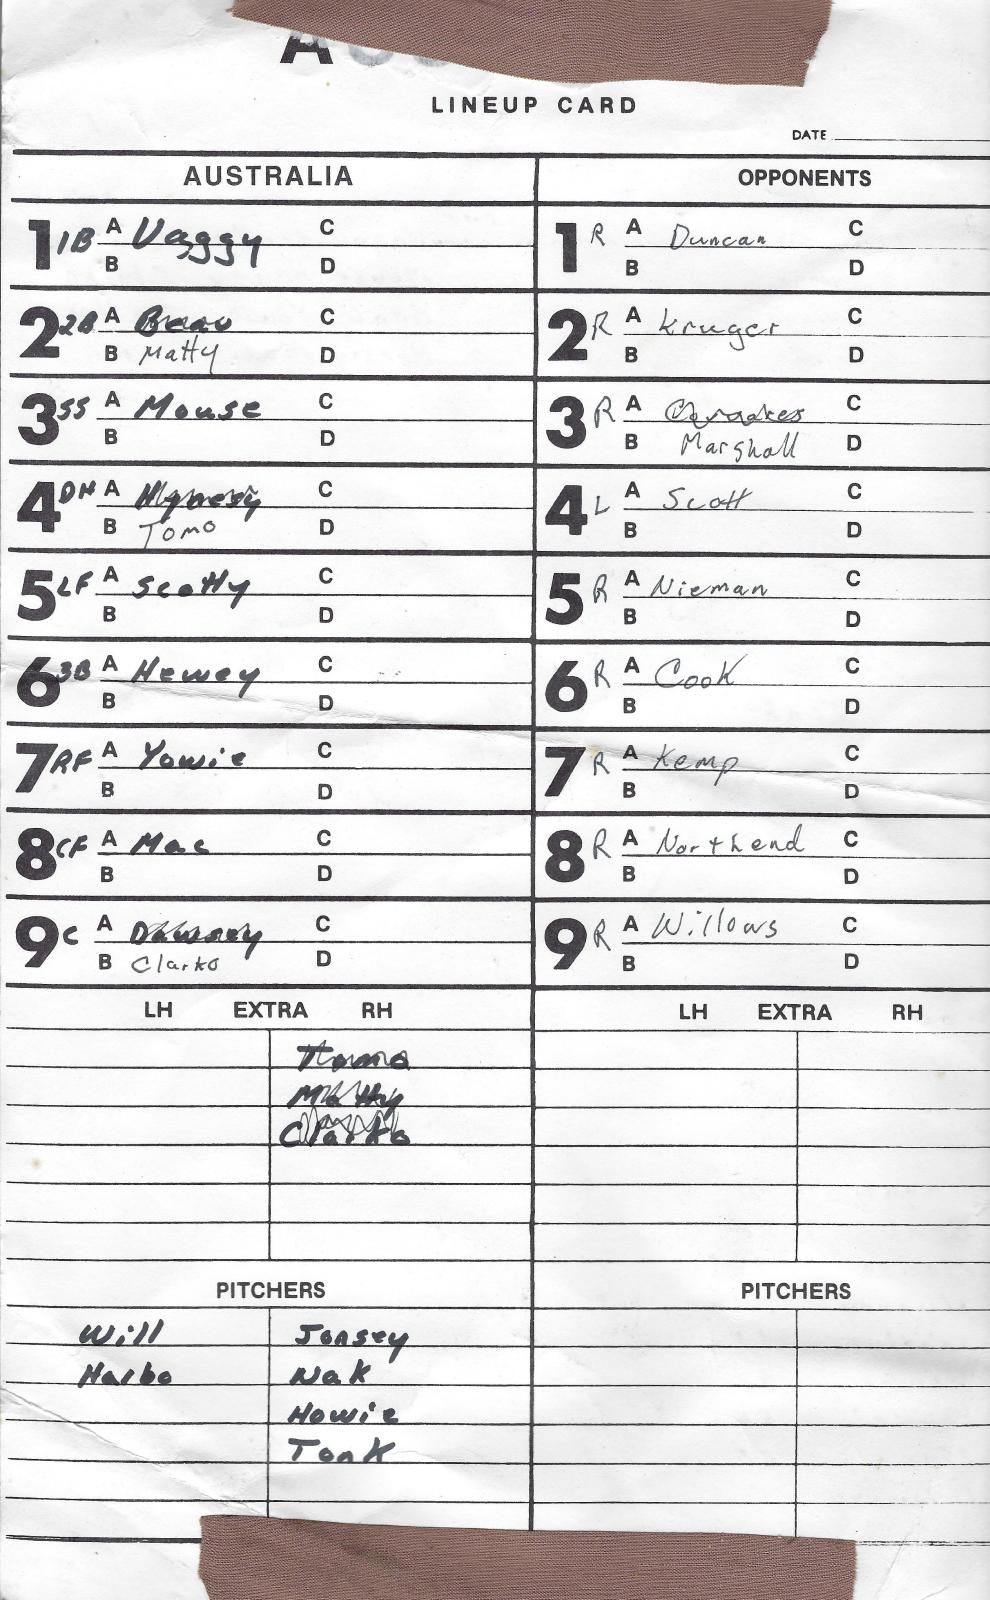 LINEUP CARD
DATE
AUSTRALIA
1 1B A Vaggy C
B D
2 2B A Beau C
B Matty D
3 SS A Mouse C
B D
4 DH A Hynesy C
B Tomo D
5 LF A Scotty C
B D
6 3B A Hewey C
B D
7 RF A Yowie C
B D
8 CF A Mac C
B D
9 C A Dawsey C
B Clarko D
LH EXTRA RH
Tomo
Matty
Clarko
PITCHERS
Will Jonsey
Harbo Nak
Howie
Tonk
OPPONENTS
1 R A Duncan C
B D
2 R A Kruger C
B D
3 R A C
B Marshall D
4 L A Scott C
B D
5 R A Nieman C
B D
6 R A Cook C
B D
7 R A Kemp C
B D
8 R A Northend C
B D
9 R A Willows C
B D
LH EXTRA RH
PITCHERS